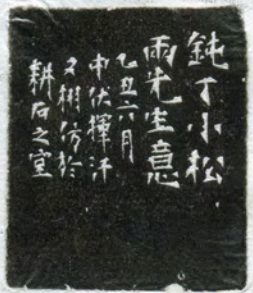 鈍丁小松
兩先生意
乙丑六月
中伏揮汗
又栩仿於
耕石之室